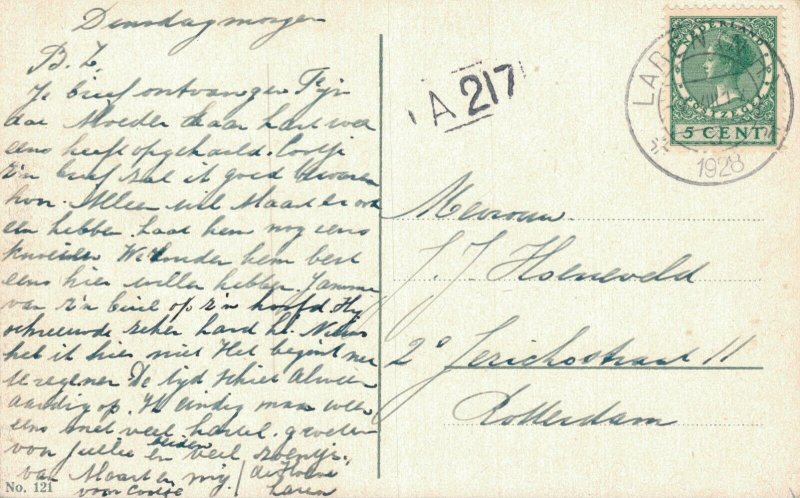 Dinsdagmorgen
B. Z.
Je brief ontvangen Fijn
dat Moeder haar hart weer
eens heeft opgehaald. Cootje
z'n brief zal ik goed bewaren
hoor. Alleen wil Maarten ook
een hebben. Laat hem nog eens
We zouden hem best
eens hier willen hebben. Jammer
van z'n buil op z'n hoofd Hij
schreeuwde zeker hard he. Nieuws
het is hier niet Het begint nu
te regenen De tijd schiet alweer
aardig op. Ik eindig maar weer
eens met veel hartel. groeten
van jullie beiden en veel zoentjes
van Maart en mij
voor Cootje
Laren
No. 121
A 217
NEDERLAND
POSTZEGEL
5 CENT
LAREN
1928
Mevrouw
J. J. Hoeneveld
2e Jerichostraat 11
Rotterdam